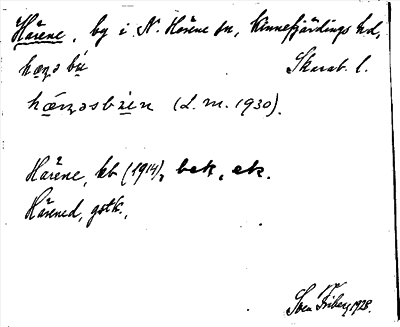 Härene, by i N. Härene sn, Kinnefjärdings hd,
hæ̨ṇə bu Skarab. l.
hǽ̨ṇəsbùen (L.m. 1930).
Härene, kb (1914), bek, ek.
Härened, gstk.,
Sven Friberg 1928.